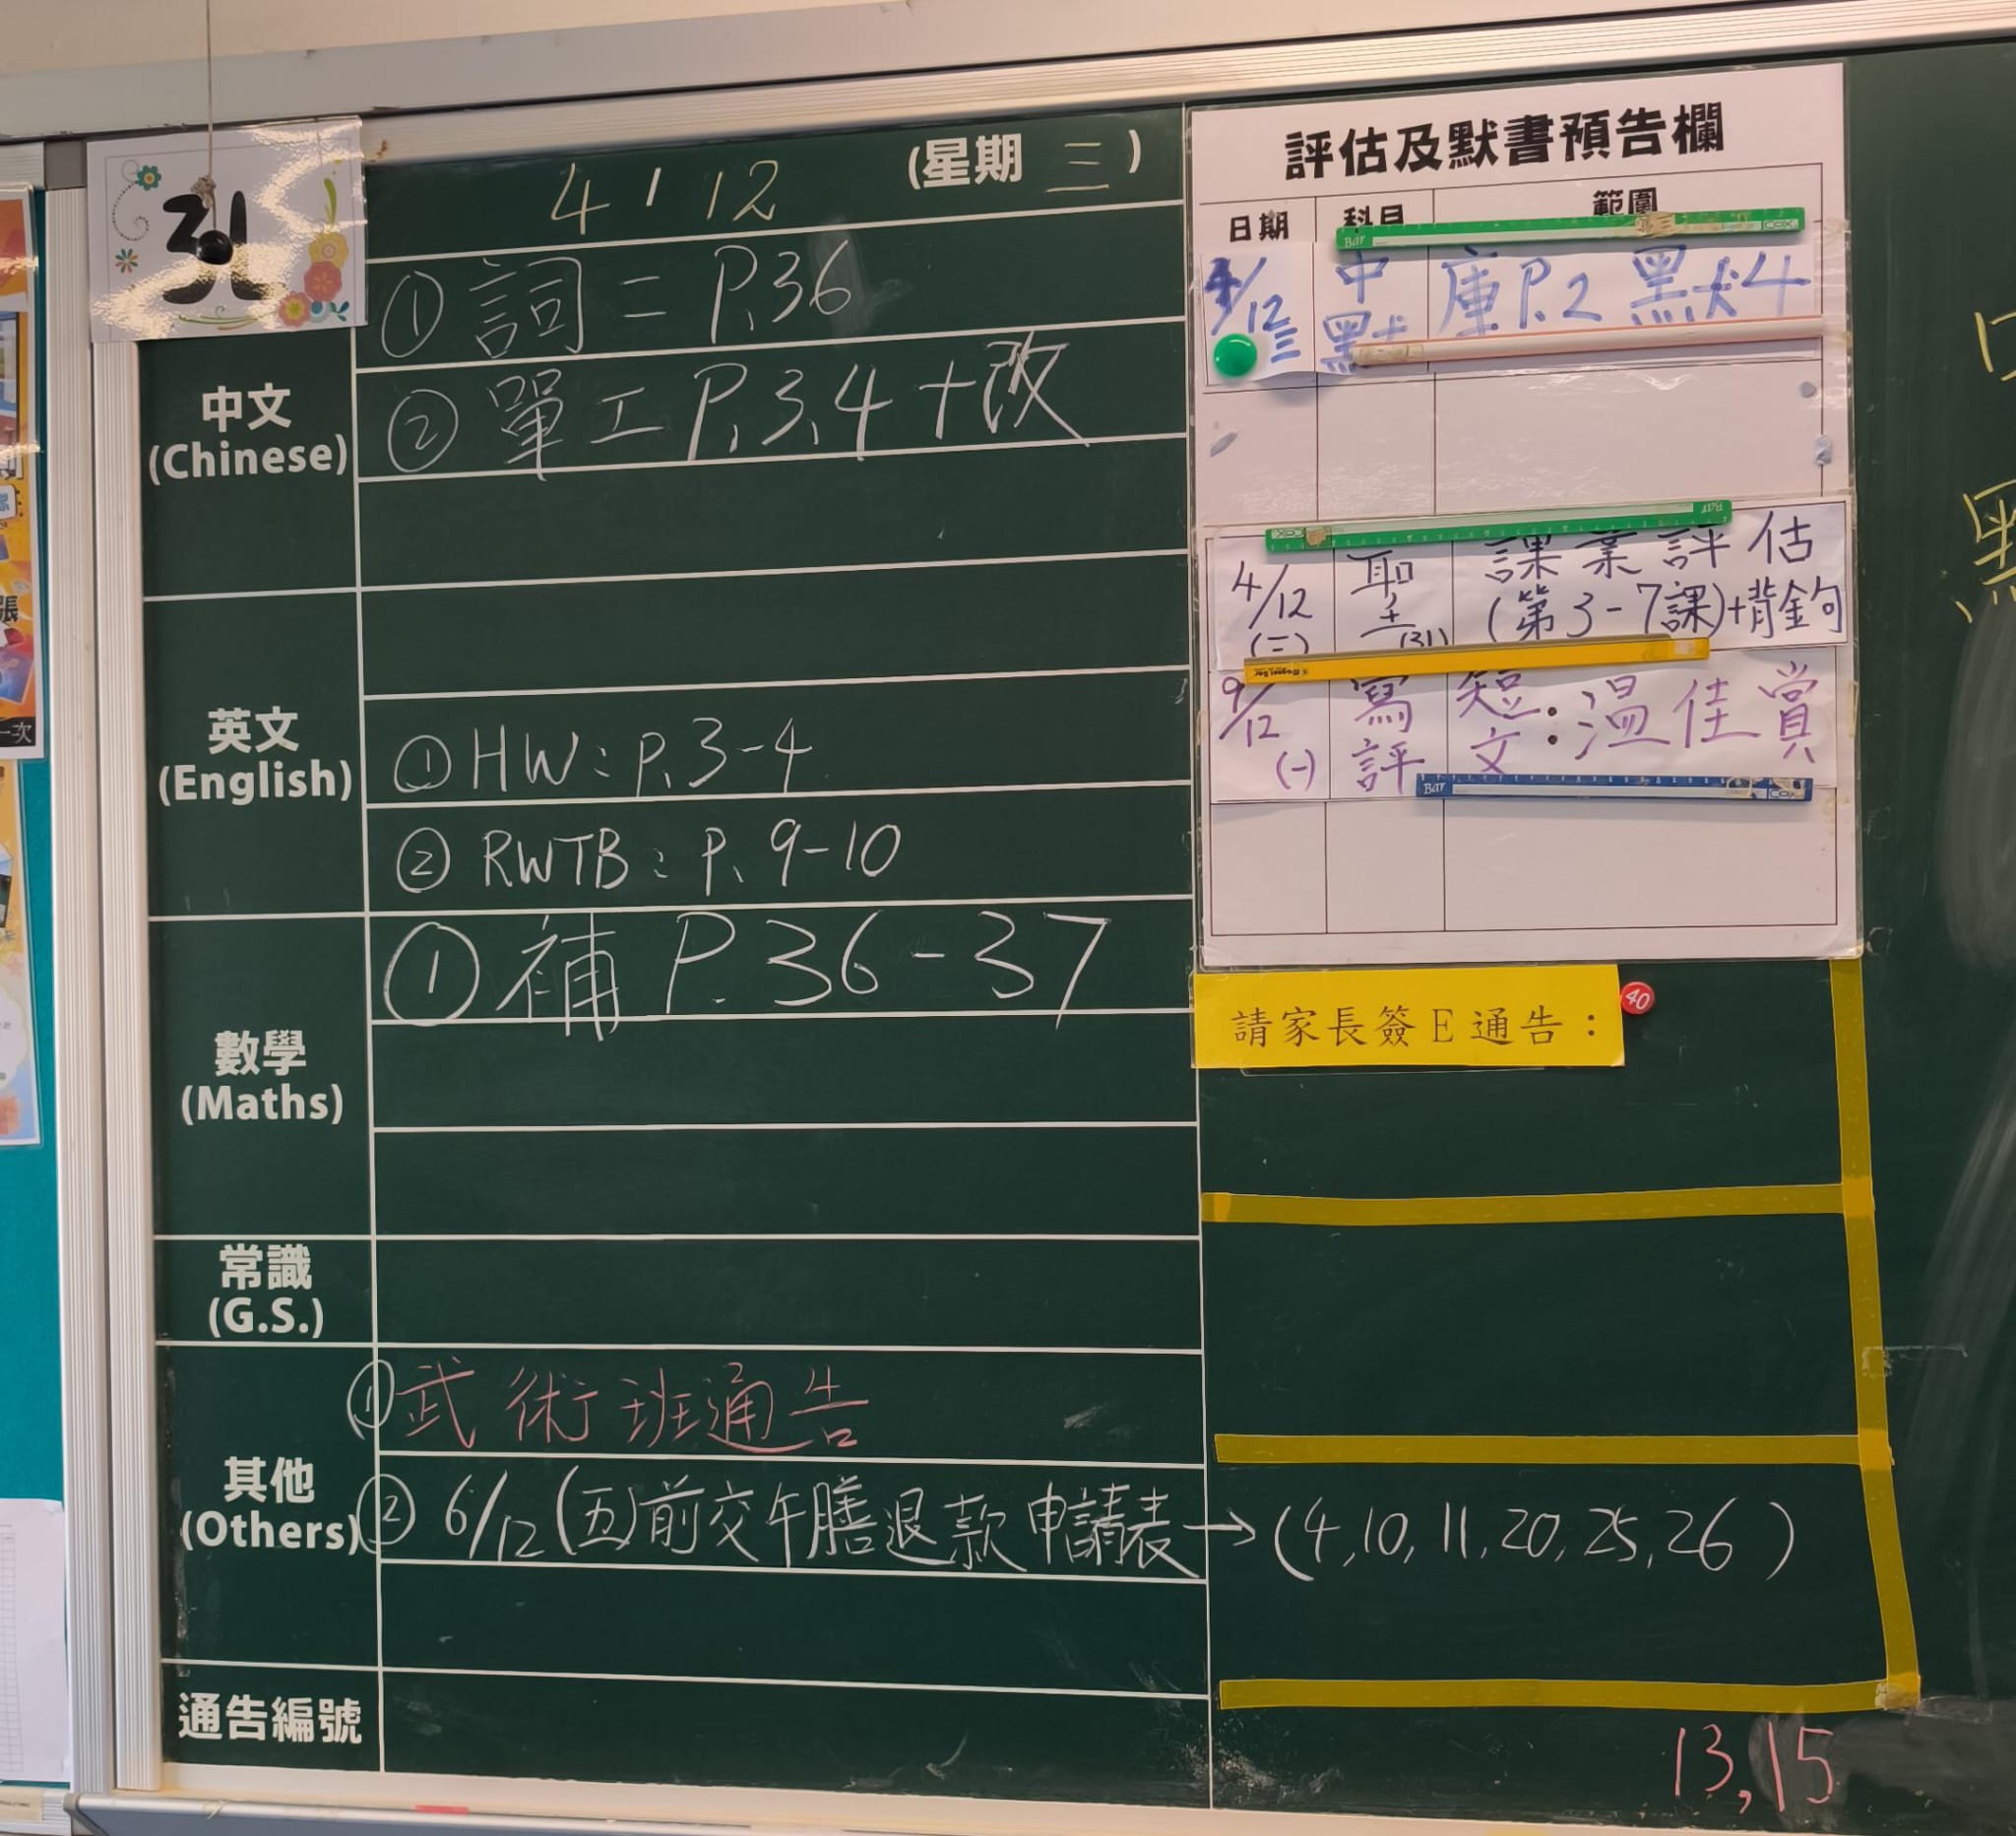 3L
4 / 12 (星期 三)
中文
(Chinese)
① 詞二 P.36
② 單工 P.3,4+改
英文
(English)
① HW: P.3-4
② RWTB: P. 9-10
數學
(Maths)
① 補 P.36-37
常識
(G.S.)
其他
(Others)
① 武術班通告
② 6/12(五)前交午膳退款申請表→(4,10,11,20,25,26)
通告編號
13,15
評估及默書預告欄
日期 科目 範圍
4/12 三 中默 庫P.2 默4
4/12 聖 (3L) 課業評估
(第3-7課)+背鈎
9/12 (一) 寫評 短文:溫佳賞
請家長簽E通告:
40